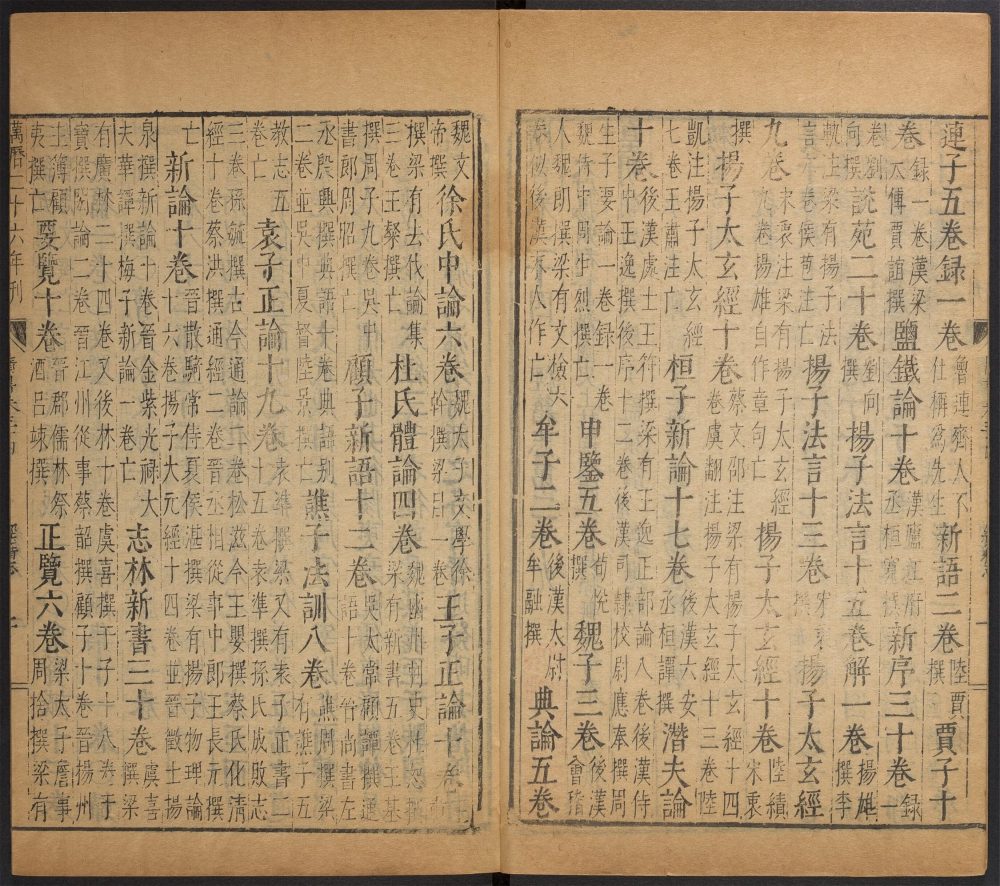 連子五卷録一卷魯連齊人不仕稱爲先生新語二卷陸賈撰賈子十
卷録一卷漢梁太傅賈誼撰鹽鐵論十卷漢廬江府丞桓寬撰新序三十卷録一
卷劉向撰說苑二十卷劉向撰揚子法言十五卷解一卷揚雄撰李
軌注梁有揚子法言六卷侯苞注亡揚子法言十三卷宋衷揚子太玄經
九卷宋衷注梁有揚子太玄經九卷揚雄自作章句亡揚子太玄經十卷陸績宋衷
撰揚子太玄經十卷蔡文邵注梁有揚子太玄經十四卷虞翻注揚子太玄經十三卷陸
凱注揚子太玄經七卷王肅注亡桓子新論十七卷後漢六安丞桓譚撰潛夫論
十卷後漢處士王符撰梁有王逸正部論八卷後漢侍中王逸撰後序十二卷後漢司隸校尉應奉撰周
生子要論一卷録一卷魏侍中周生烈撰亡申鑒五卷荀悅撰魏子三卷後漢會稽
人魏朗撰梁有文檢六卷似後漢末人作亡牟子二卷後漢太尉牟融撰典論五卷
魏文帝撰徐氏中論六卷魏太子文學徐幹撰梁目一卷王子正論十卷王肅
撰梁有去伐論集三卷王粲撰亡杜氏體論四卷魏幽州刺史杜恕撰梁有新書五卷王基
撰周子九卷吳中書郎周昭撰亡顧子新語十二卷吳太常顧譚撰通語十卷晉尚書左
丞殷興撰典語十卷典語别二卷並吳中夏督陸景撰亡譙子法訓八卷譙周撰梁有譙子五
教志五卷亡袁子正論十九卷袁準撰梁又有袁子正書二十五卷袁準撰孫氏成敗志
三卷孫毓撰古今通論二卷松滋令王嬰撰蔡氏化清經十卷蔡洪撰通經二卷晉丞相從事中郎王長元撰
亡新論十卷晉散騎常侍夏侯湛撰梁有揚子物理論十六卷揚子大元經十四卷並晉徵士揚
泉撰新論十卷晉金紫光禄大夫華譚撰梅子新論一卷亡志林新書三十卷虞喜撰梁
有廣林二十四卷又後林十卷虞喜撰干子十八卷干寶撰閎論二卷晉江州從事蔡韶撰顧子十卷晉揚州
主簿顧夷撰亡要覽十卷晉郡儒林祭酒呂竦撰正覽六卷梁太子詹事周捨撰梁有
萬曆二十六年刊
經籍志